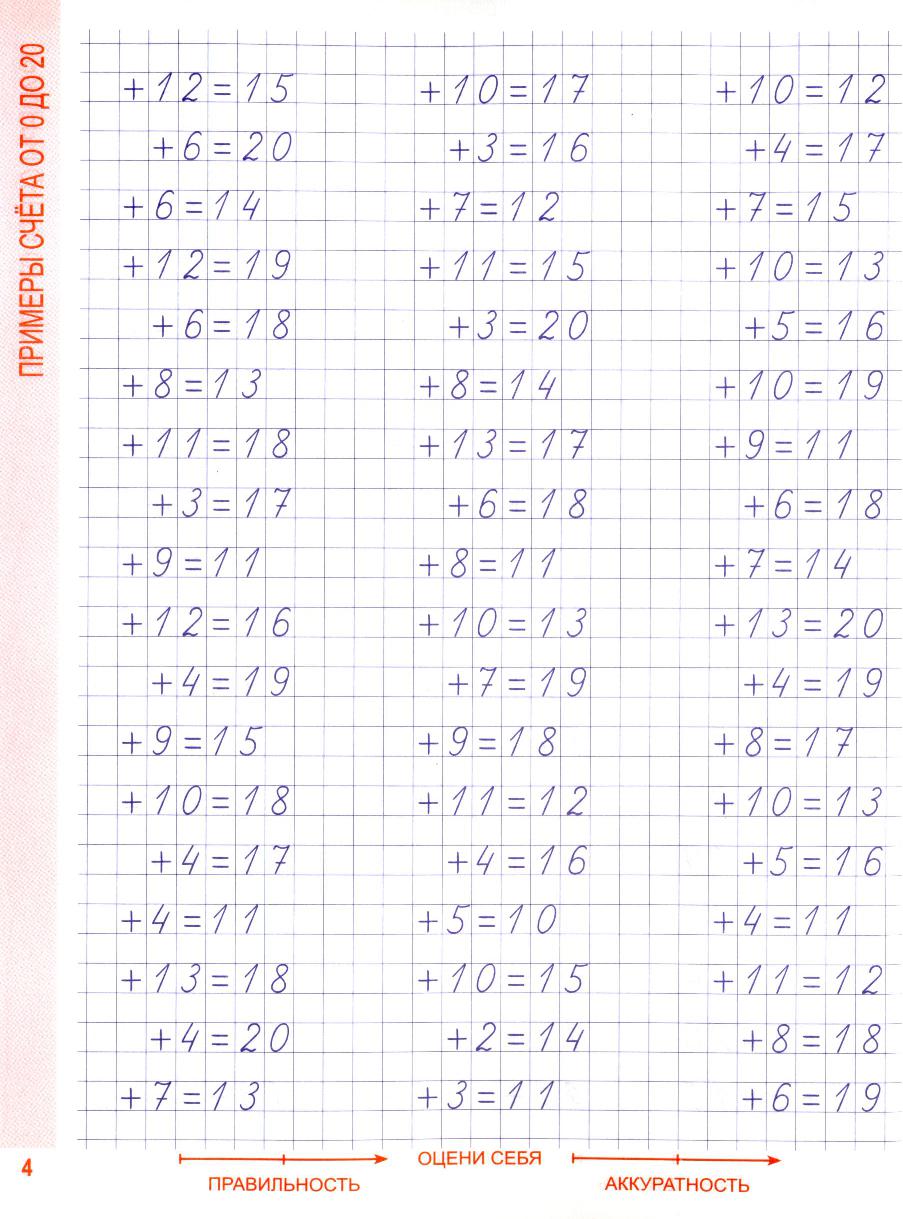 ПРИМЕРЫ СЧЁТА ОТ 0 ДО 20
+12=15 +10=17 +10=12
+6=20 +3=16 +4=17
+6=14 +7=12 +7=15
+12=19 +11=15 +10=13
+6=18 +3=20 +5=16
+8=13 +8=14 +10=19
+11=18 +13=17 +9=11
+3=17 +6=18 +6=18
+9=11 +8=11 +7=14
+12=16 +10=13 +13=20
+4=19 +7=19 +4=19
+9=15 +9=18 +8=17
+10=18 +11=12 +10=13
+4=17 +4=16 +5=16
+4=11 +5=10 +4=11
+13=18 +10=15 +11=12
+4=20 +2=14 +8=18
+7=13 +3=11 +6=19
4 ОЦЕНИ СЕБЯ
ПРАВИЛЬНОСТЬ АККУРАТНОСТЬ